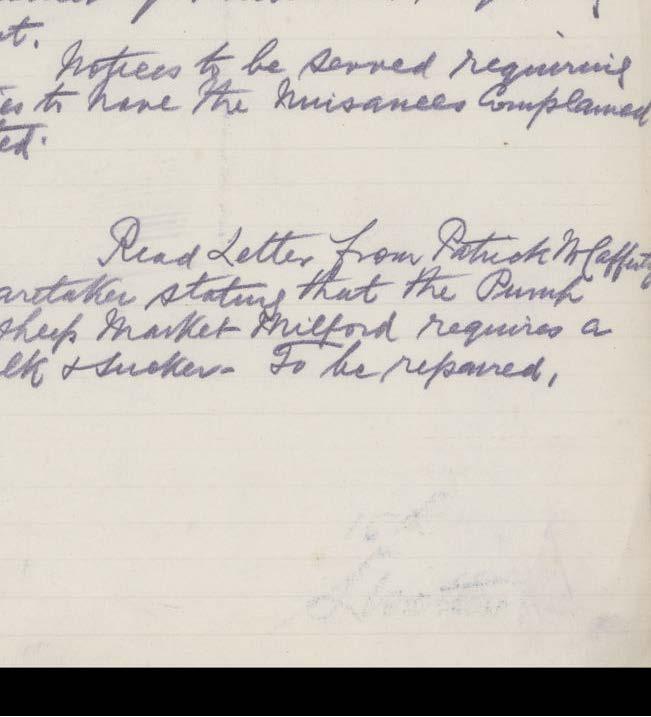 nt.
Notices to be served requiring
ies to have the Nuisances Complained
ted.
Read Letter from Patrick McCafferty
aretaker stating that the Pump
sheep Market Milford requires a
elk & sucker - To be repaired,